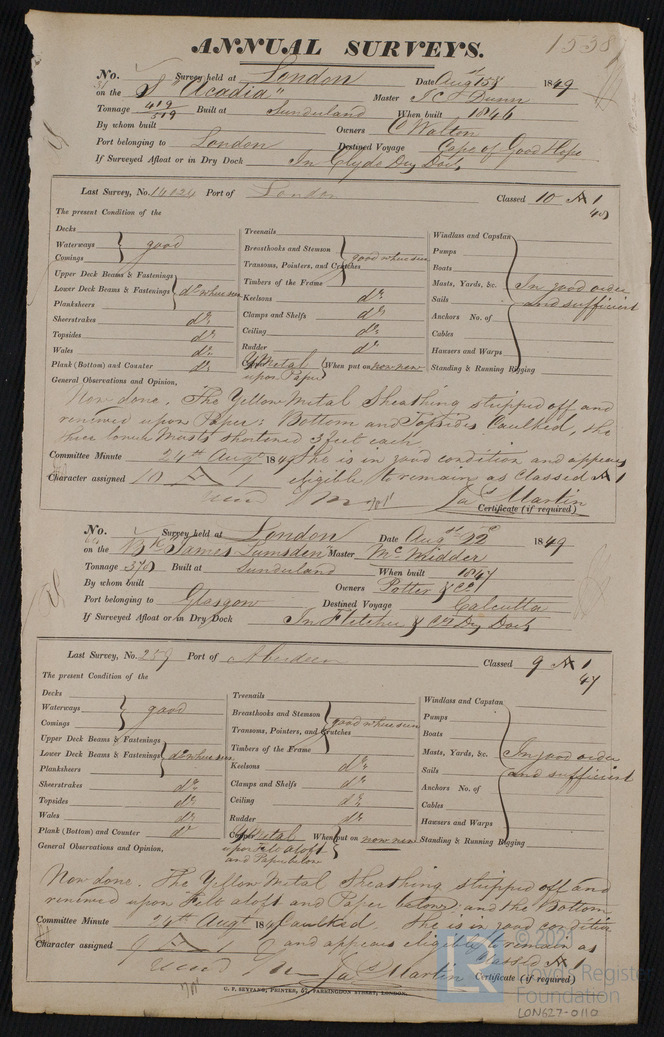 ANNUAL SURVEYS.
15387
No. Survey held at London Date Augst 15th 1849
on the S "Acadia" Master Dunn
Tonnage 419/519 Built at Sunderland When built 1846
By whom built Owners C Walton
Port belonging to London Destined Voyage Cape of Good Hope
If Surveyed Afloat or in Dry Dock In Clyde Dry Dock
Last Survey, No. 14024 Port of London Classed 10 A 1
The present Condition of the
Decks
Waterways
Comings
good
Upper Deck Beams & Fastenings
Lower Deck Beams & Fastenings
Planksheers
do where seen
Sheerstrakes do
Topsides do
Wales do
Plank (Bottom) and Counter do
Treenails
Breasthooks and Stemson
Transoms, Pointers, and Crutches
Timbers of the Frame
good where seen
Keelsons do
Clamps and Shelfs do
Ceiling do
Rudder do
Y Metal upon Paper When put on now new
Windlass and Capstan
Pumps
Boats
Masts, Yards, &c.
Sails
Anchors No. of
Cables
Hausers and Warps
Standing & Running Rigging
In good order
and sufficient
General Observations and Opinion,
Now done. The Yellow Metal Sheathing stripped off and
renewed upon Paper: Bottom and Topsides Caulked, the
three lower Masts shortened 3 feet each
Committee Minute 24th Augt 1849 She is in good condition and appears
Character assigned 10 A 1 eligible to remain as Classed A 1
Jas Martin
Certificate (if required)
No. Survey held at London Date Augst 22d 1849
on the Bk "James Lumsden" Master McMidder
Tonnage 370 Built at Sunderland When built 1847
By whom built Owners Potter & Co
Port belonging to Glasgow Destined Voyage Calcutta
If Surveyed Afloat or in Dry Dock In Fletcher & Cos Dry Dock
Last Survey, No. 259 Port of Aberdeen Classed 9 A 1
47
The present Condition of the
Decks
Waterways
Comings
good
Upper Deck Beams & Fastenings
Lower Deck Beams & Fastenings
Planksheers
do where seen
Sheerstrakes do
Topsides do
Wales do
Plank (Bottom) and Counter do
Treenails
Breasthooks and Stemson
Transoms, Pointers, and Crutches
Timbers of the Frame
good where seen
Keelsons do
Clamps and Shelfs do
Ceiling do
Rudder do
Y Metal When put on now new
upon Felt aloft
and Paper below
Windlass and Capstan
Pumps
Boats
Masts, Yards, &c.
Sails
Anchors No. of
Cables
Hausers and Warps
Standing & Running Rigging
In good order
and sufficient
General Observations and Opinion,
Now done. The Yellow Metal Sheathing stripped off and
renewed upon Felt aloft and Paper below and the Bottom
Committee Minute 24th Augt 1849 Caulked. She is in good condition
Character assigned 9 A 1 and appears eligible to remain as
Classed A 1
Jas Martin Certificate (if required)
G. F. SEYFANG, PRINTER, 57, FARRINGDON STREET, LONDON.
© 2023
Lloyd's Register
Foundation
LON627-0110